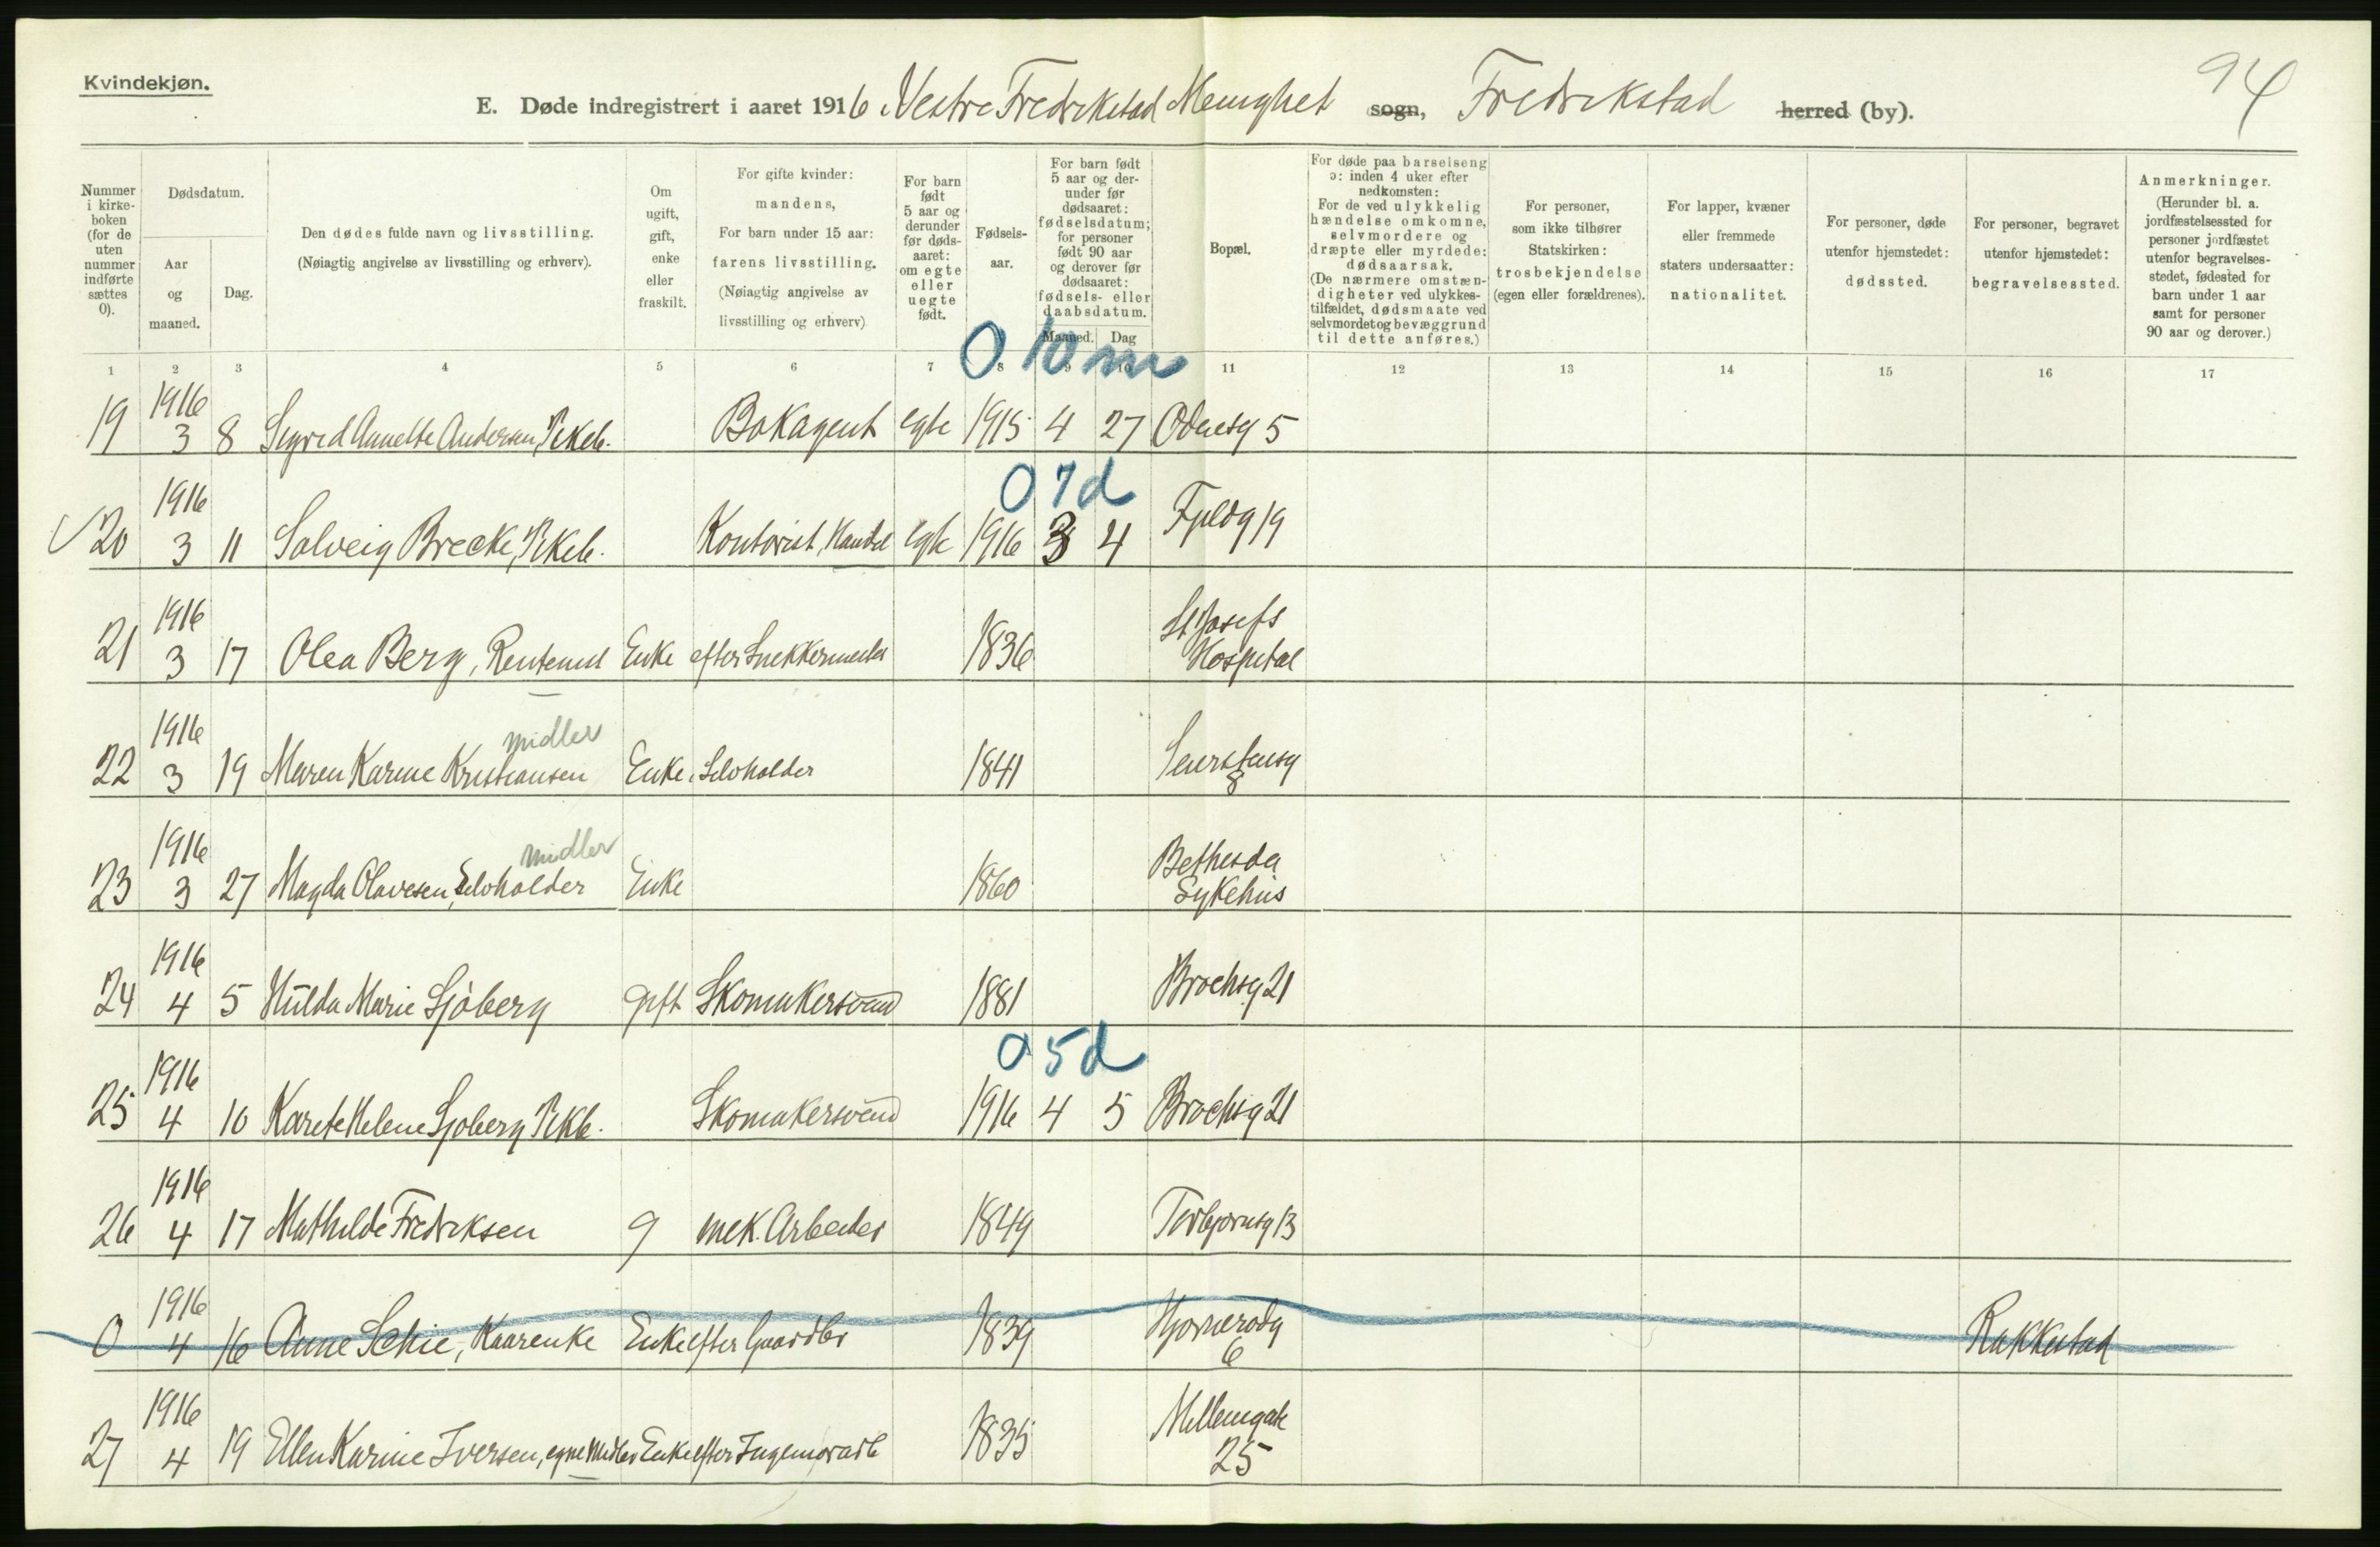 Kvindekjøn.
94
E. Døde indregistrert i aaret 1916 i Vestre Fredrikstad Menighet sogn, Fredrikstad herred (by).
Nummer i kirke-boken (for de uten nummer indførte sættes 0).
Dødsdatum.
Aar og maaned.
Dag.
Den dødes fulde navn og livsstilling.
(Nøiagtig angivelse av livsstilling og erhverv).
Om ugift, gift, enke eller fraskilt.
For gifte kvinder: mandens,
For barn under 15 aar: farens livsstilling.
(Nøiagtig angivelse av livsstilling og erhverv)
For barn født 5 aar og derunder før døds-aaret: om egte eller uegte født.
Fødsels-aar.
For barn født 5 aar og der-under før dødsaaret: fødselsdatum; for personer født 90 aar og derover før dødsaaret: fødsels- eller daabsdatum.
Maaned. Dag
Bopæl.
For døde paa barselseng ɔ: inden 4 uker efter nedkomsten:
For de ved ulykkelig hændelse omkomne, selvmordere og dræpte eller myrdede: dødsaarsak.
(De nærmere omstæn-digheter ved ulykkes-tilfældet, dødsmaate ved selvmord et og bevæggrund til dette anføres.)
For personer, som ikke tilhører Statskirken: trosbekjendelse (egen eller forældrenes).
For lapper, kvæner eller fremmede staters undersaatter: nationalitet.
For personer, døde utenfor hjemstedet: dødssted.
For personer, begravet utenfor hjemstedet: begravelsessted.
Anmerkninger.
(Herunder bl. a. jordfæstelsessted for personer jordfæstet utenfor begravelses-stedet, fødested for barn under 1 aar samt for personer 90 aar og derover.)
1 2 3 4 5 6 7 8 9 10 11 12 13 14 15 16 17
0 10 m
19 1916 3 8 Sigrid Annette Andersen, Pikeb. Bokagent egte 1915 4 27 Odinsg 5
0 7 d
20 1916 3 11 Solveig Brecke, Pikeb. Kontorist, Handel egte 1916 3 4 Fjeldg 19
21 1916 3 17 Olea Berg, Rentenist Enke efter Snekkermester 1836 St Josefs Hospital
midler
22 1916 3 19 Maren Karine Kristiansen Enke. Selvholder 1841 8
midler
23 1916 3 27 Magda Olavesen, Selvholder Enke 1860 Bethesda Sykehus
24 1916 4 5 Hulda Marie Sjöberg gift Skomakersvend 1881 Brochsg 21
0 5 d
25 1916 4 10 Karete Helene Sjöberg Pikb. Skomakersvend 1916 4 5 Brochsg 21
26 1916 4 17 Mathilde Fredriksen g mek. Arbeider 1849 Torbjørnsg 13
0 1916 4 16 Anne Schie, Kaarenke Enke efter Gaardbr 1839 6 Rakkestad
27 1916 4 19 Ellen Karine Iversen, egne Midler Enke efter 1835 Mellemgate 25